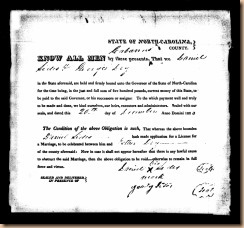 STATE OF NORTH-CAROLINA,
Cabarrus COUNTY.
KNOW ALL MEN by these presents, That we Daniel
in the State aforesaid, are held and firmly bound unto the Governor of the State of North-Carolina
for the time being, in the just and full sum of five hundred pounds, current money of this State, to
be paid to the said Governor, or his successors or assigns: To the which payment well and truly
to be made and done, we bind ourselves, our heirs, executors and administrators. Sealed with our
seals, and dated this 20th day of Anno Domini 182
The Condition of the above Obligation is such, That whereas the above bounden
Daniel hath made application for a License for
a Marriage, to be celebrated between him and of
the county aforesaid: Now in case it shall not appear hereafter that there is any lawful cause
to obstruct the said Marriage, then the above obligation to be void—otherwise to remain in full
force and virtue.
Daniel X
SEALED AND DELIVERED mark
IN PRESENCE OF